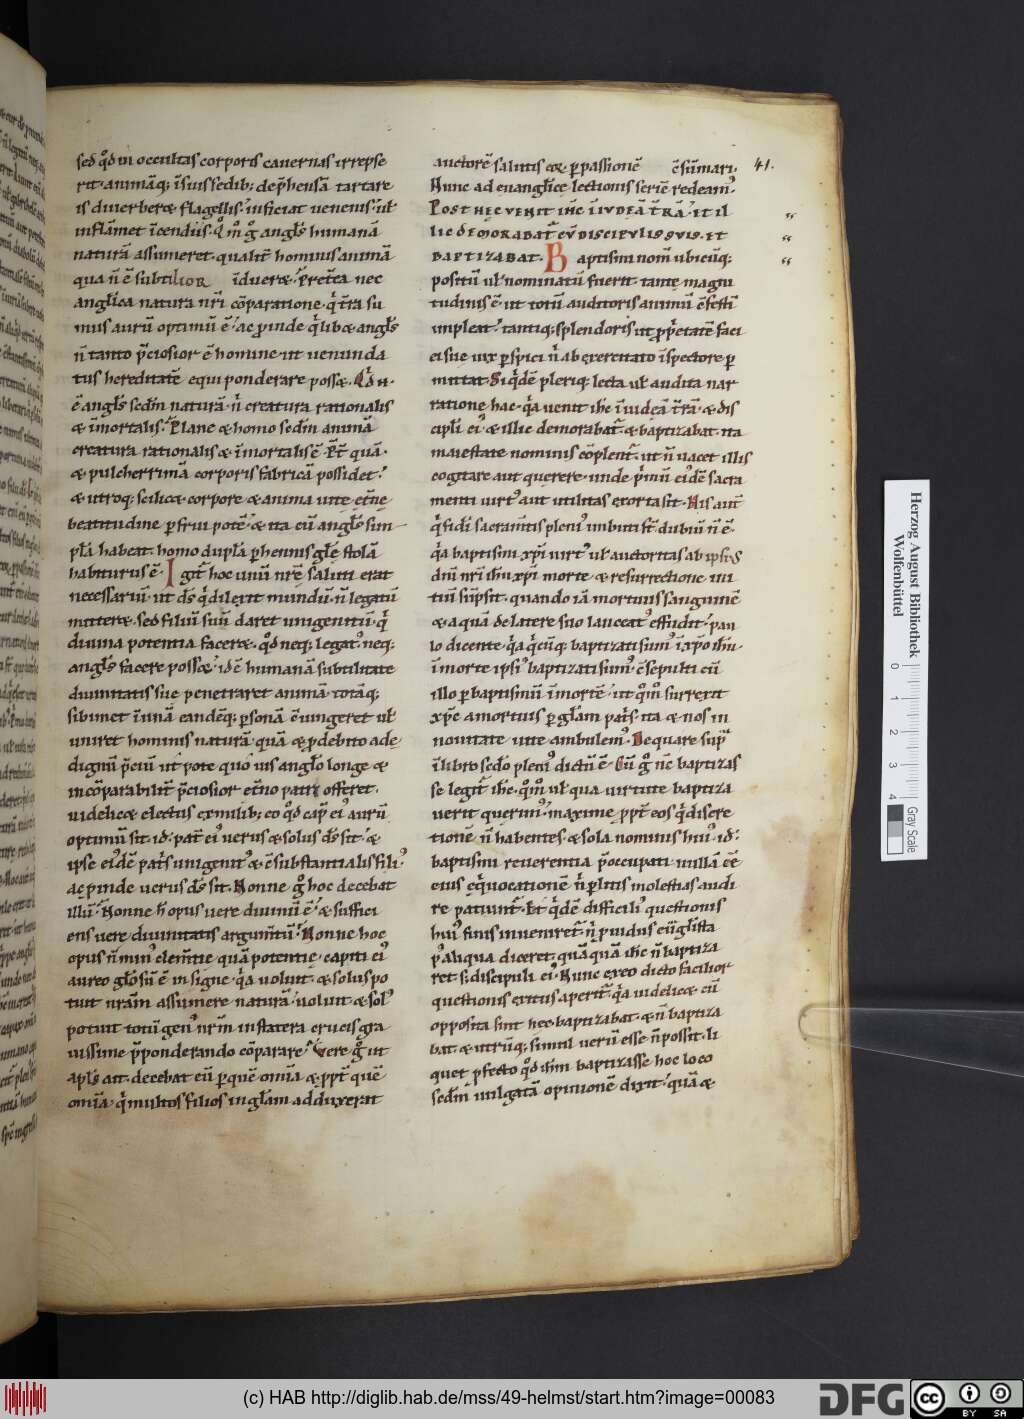 sed qd̄ in occultas corporis cavernas irrepse
rit· animāq; ī suis sedib; dep̄hensā tartare
is diverberæ flagellis· inficiat venenis· ul̄
inflāmet īcendiis· Qm̄ g̊ angl̄s humanā
naturā assumeret· qualit̄ hominis animā
qua ñ ē subtilior īdueræ· Pret̄ea nec
anglica natura nr̄i cōparatione· q̄ t̄ra su
mus aurū optimū ē· ac ꝑinde q̄libæ angl̄s
ñ tanto p̄ciosior ē homine ut venunda
tus hereditatē equi ponderare possæ· Qd̄ .n.
ē angl̄s sedm̄ naturā· n̄ creatura rationalis
æ īmortalis· Plane æ homo sedm̄ animā
creatura rationalis æ īmortalis ē· Et̄ quā·
æ pulcherrimā corporis fabricā possidet·
æ utroq; scilicæ corpore æ anima vite et̄ne
beatitudine ꝑfrui potē· æ ita cū angl̄s sim
pl̄a habeat· homo duplā ꝑhennis gl̄e stolā
habiturus ē· Igit̄ hoc unū nr̄e saluti erat
necessariū· ut ds̄ q̄ dilexit mundū· ñ legatū
mitteræ· sed filiū suū daret unigenitū· q̄
divina potentia faceræ· qd̄ neq; legat᾽ neq;
angl̄s facere possæ· id ē humanā subtilitate
divinitatis sue penetraret animā· totāq;
sibimet ī unā eandēq; ꝑsonā cōiungeret ul̄
uniret hominis naturā· quā æ ꝓ debito a de
dignū p̄ciū· ut pote quo ius anglo longe æ
incōparabilit̄ p̄ciosior et̄no patri offeret·
videlicæ electus ex milib; eo qd̄ cap̄ ei᾽ aurū
optimū sit· id· pat̄ ei᾽ verus æ solus ds̄ sit· æ
ipse ei᾽dē pat̄s unigenit᾽ æ cōsubstantialis fili᾽
ac ꝑinde verus ds̄ sit· Nonne g̊ hoc decebat
illū· Nonne h̄ opus vere divinū ē· æ suffici
ens vere divinitatis argumt̄ū· Nonne hoc
opus ñ min᾽ clemt̄ie quā potentie· capiti ei᾽
aureo gl̄osū ē insigne· q̄a voluit æ solus po
tuit nr̄am assumere naturā· voluit æ sol᾽
potuit totū gen᾽ nr̄m in statera crucis gra
vissime p̄ponderando cōparare· Vere g̊ ut
apl̄s ait· decebat eū ꝑ quē omīa æ ꝓpt̄ quē
omīa· q̄ multos filios in gl̄am adduxerat
auctorē salutis eoꝝ ꝑ passionē cōsūmari·
Nunc ad evanglice lectionis seriē redeam᾽
POST HEC VENIT IHC̄ I IVDEĀ T̄RĀ· ET IL
LIC DEMORABAT̄ CV̄ DISCIPVLIS SVIS· ET
BAPTIZABAT· Baptismi nom̄ ubicūq;
positū ul̄ nominatū fuerit· tante magni
tudinis ē· ut totū auditoris animū cōfestī
impleat· tantiq; splendoris ut ꝓp̄etatē faci
ei sue vix ꝑspici n̄ ab exercitato īspectore ꝑ
mittat· Siq̄dē pleriq; lecta ul̄ audita nar
ratione hac· q̄a venit ihc̄ ī iudeā t̄rā· æ dis
cipli ei᾽ æ illic demorabat̄ æ baptizabat· ita
maiestate nominis cōplent̄· ut ñ vacet illis
cogitare aut querere· unde p̄mū ei᾽dē sacra
menti virt᾽ aut utilitas exorta sit· His aut̄
q̄ fidei sacramt̄is pleni᾽ imbuti st̄· dubiū ñ ē·
q̄a baptismi xp̄i virt᾽ ul̄ auctoritas ab ipsi᾽
dm̄i nr̄i ih̄u xp̄i morte· æ resurrectione ini
tiū sūpsit· quando iā mortuus sanguinē
æ aquā de latere suo lanceat᾽ effudit· pau
lo dicente· q̄a q̄cūq; baptizati sum᾽ ī xp̄o ih̄u·
ī morte ipsi᾽ baptizati sum᾽· cōsepulti cū
illo ꝑ baptismū ī mortē· ut qm̄ surrexit
xp̄c a mortuis ꝑ gl̄am pat̄s· ita æ nos in
novitate vite ambulem᾽· De quare sup̄
ī libro scd̄o pleni᾽ dictū ē· Cū g̊ nc̄ baptizas
se legit̄ ihc̄· qm̄ ul̄ qua virtute baptiza
verit querim᾽· maxime ꝓpt̄ eos q̄ discre
tionē ñ habentes· æ sola nominis hui᾽ id·
baptismi reverentia p̄occupati nullā cē
eius eq̄vocationē n̄ ꝑ litis molestias audi
re patiunt̄· Et q̄dē difficili᾽ questionis
hui᾽ finis inveniret̄· n̄ ꝓvidus eūgl̄ista
p᾽ aliqua diceret· quāquā ihc̄ ñ baptiza
ret s; discipuli ei᾽· Nunc ex eo dicto facilior
questionis exitus aperit̄· q̄a videlicæ cū
opposita sint hec baptizabat· æ ñ baptiza
bat· æ utrūq; simul verū esse ñ possit· li
quet ꝓfecto qd̄ ihm̄ baptizasse hoc loco
sedm̄ vulgatā opinionē dixit· quā æ
41.
Herzog August Bibliothek
Wolfenbüttel
0 1 2 3 4
Gray Scale
(c) HAB http://diglib.hab.de/mss/49-helmst/start.htm?image=00083
DFG
cc BY SA